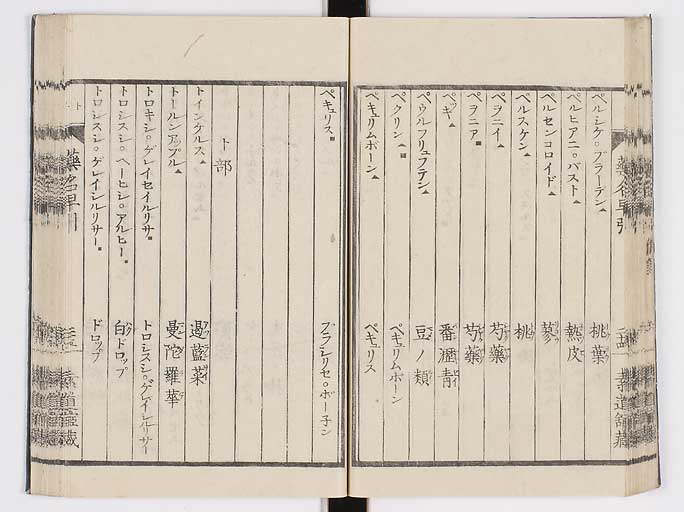 ペルシケ。ブラーデン▲ 桃葉
ペルヒアニ。バスト▲ 熱皮
ペルセンコロイド▲ 蓼
ペルスケン▲ 桃
ペヲニイ▲ 芍藥
ペヲニア■ 芍藥
ペッキ▲ 番瀝青
ペウルフリュフテン▲ 豆ノ類
ペクリン▲■ ペキュリムボーン
ペキュリムボーン▲ ペキュリス
ペキュリス■ ブラシリセ。ボー子ン
ト部
トインケルス▲ 遏藍菜
トールンアップル▲ 曼陀羅華
トロキシ。グレイセイルリサ■ トロシスシ。グレイシルリサー
トロシスシ。ヘーヒシ。アルヒー■ 白ドロップ
トロシスシ。グレインルリサー■ ドロップ